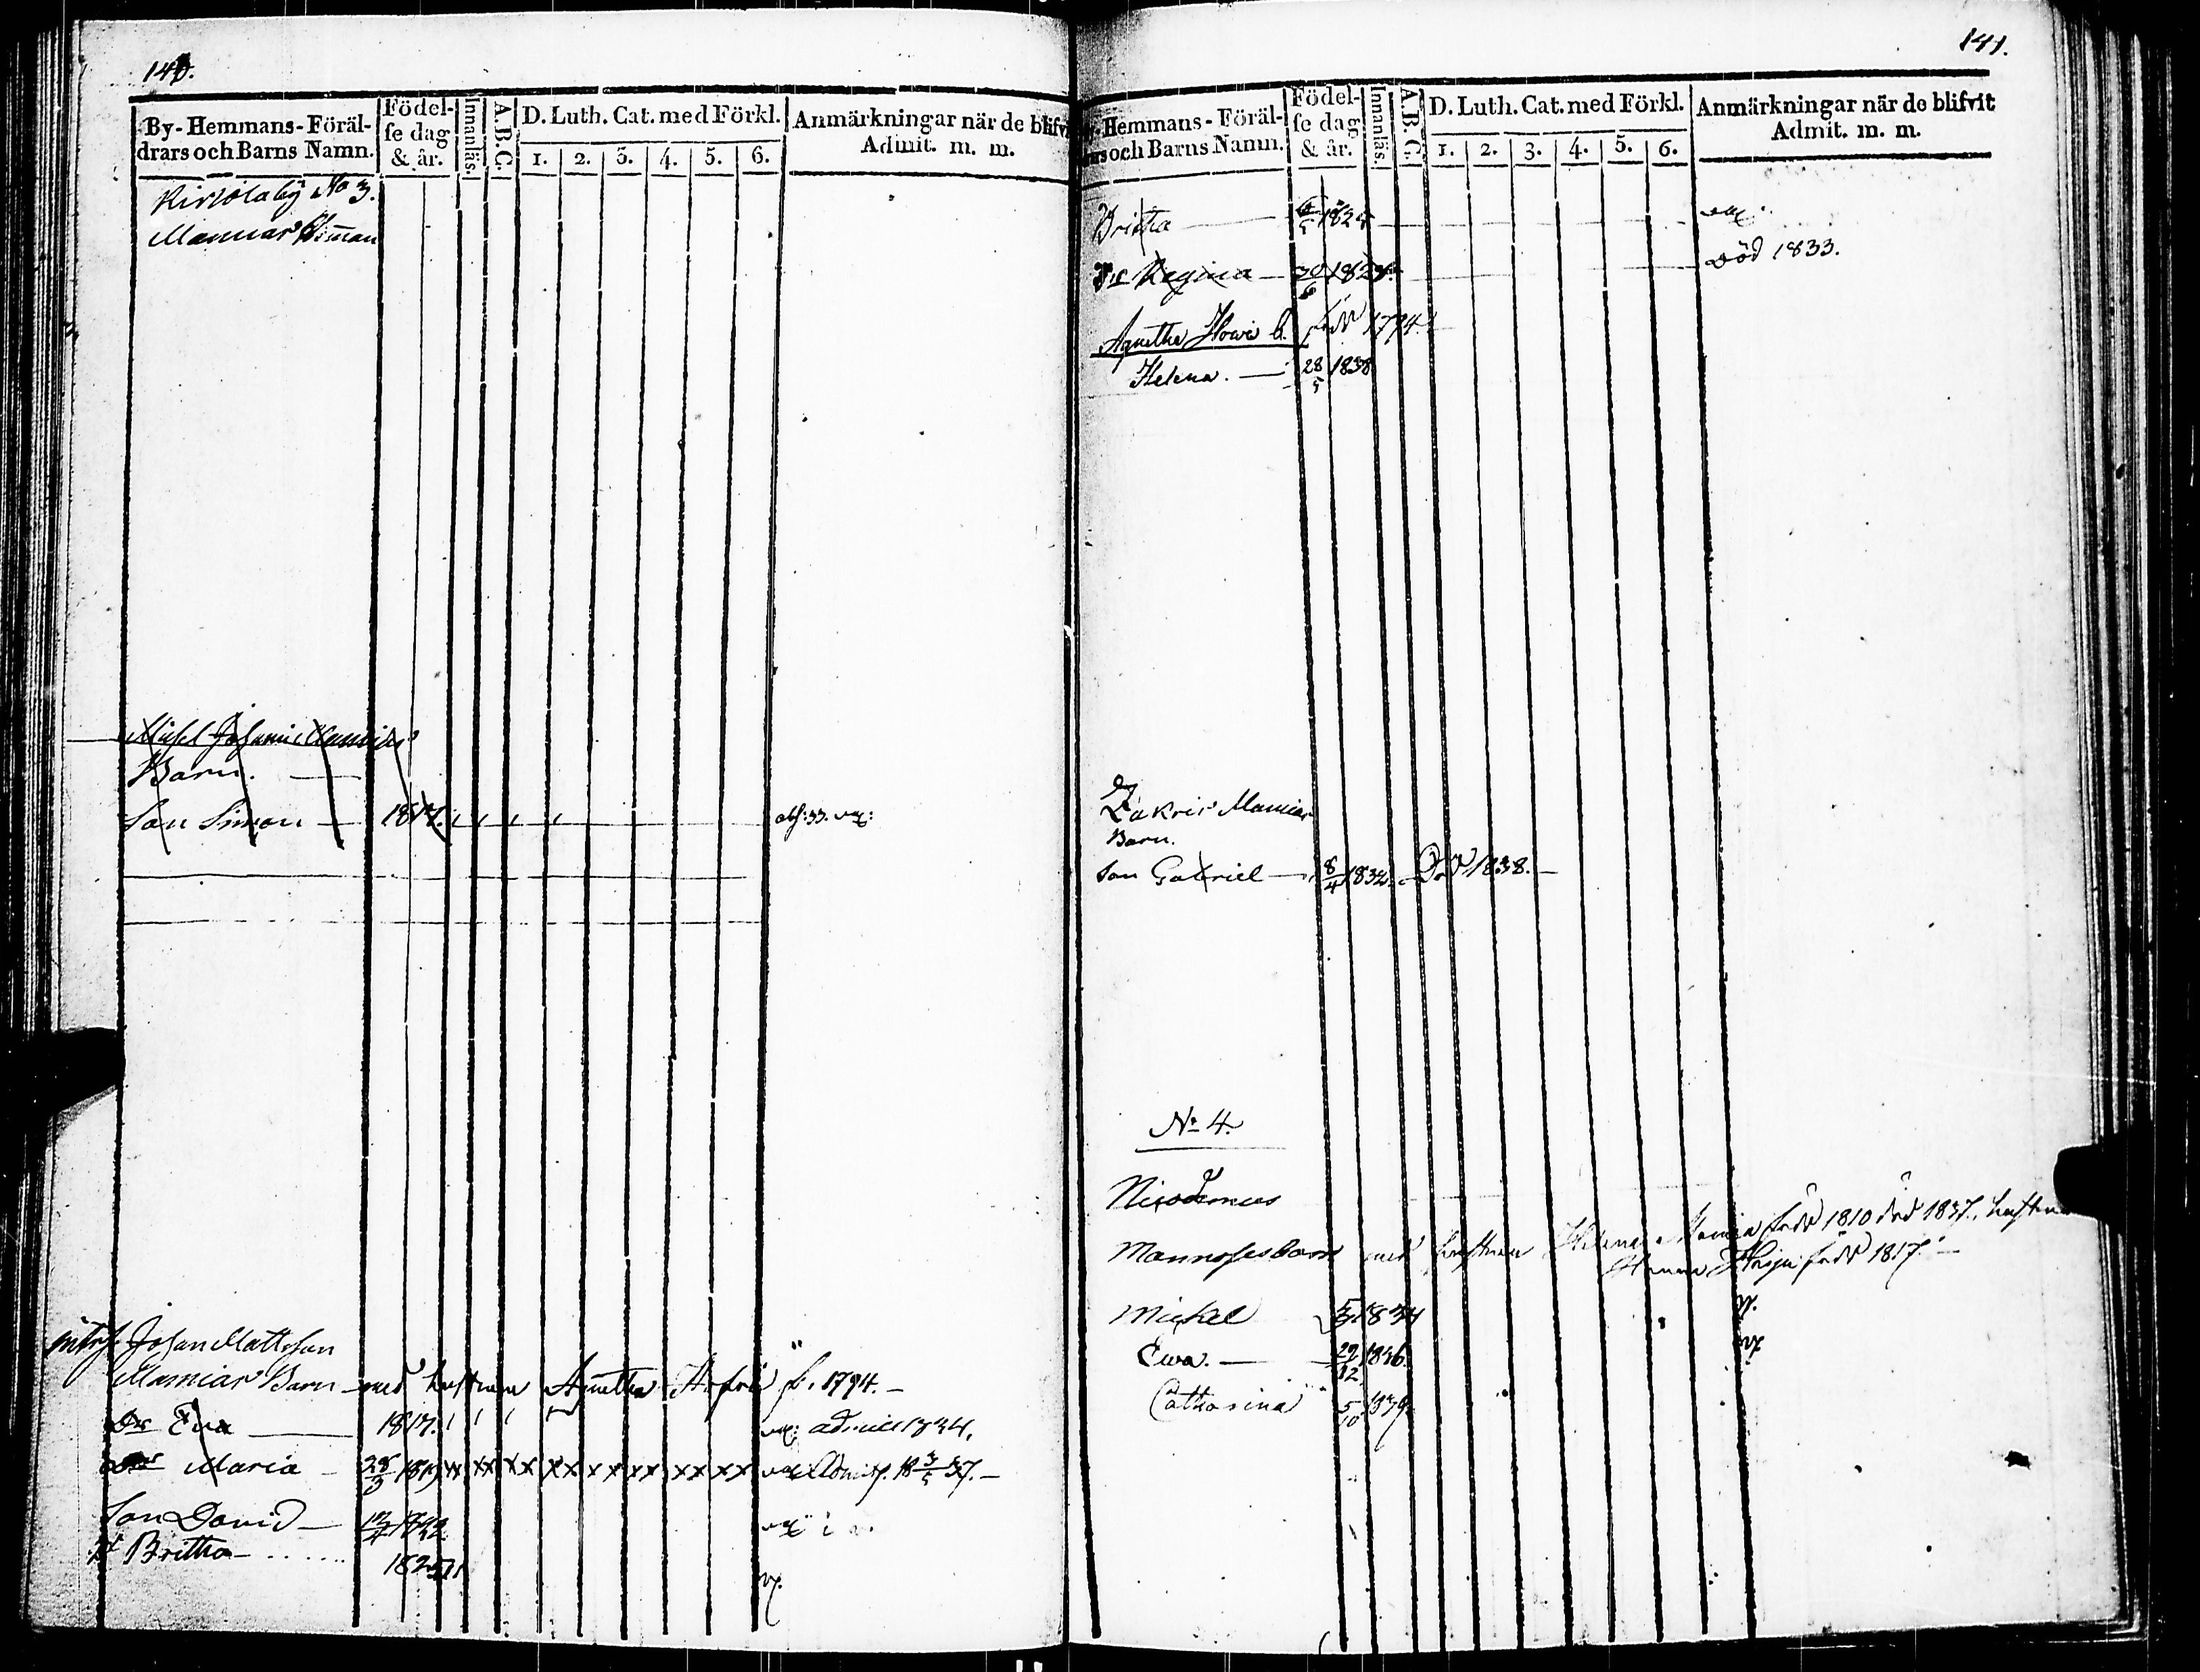 140.
By-Hemmans-Föräl-
drars och Barns Namn.
Födel-
se dag
& år.
Innanläs.
A.B.C.
D. Luth. Cat. med Förkl.
1. 2. 3. 4. 5. 6.
Anmärkningar när de blifvit
Admit. m. m.
Kirjola by No 3.
Mamias
Johan
Barn.
Son Simon 1817. abs: 33. vac:
Johan Mattsson
Mamias Barn med hustrun Agnetha f. 1794.
Dr Eva 1817. vac: admit 1834.
Dr Maria 28/3 1819 xx xx xx xx xx xx xx xx vac Admitt. 18 3/5 37.
Son David 1822 vac
Dr Britha 1825 v.
141.
Hemmans-Föräl-
och Barns Namn.
Födel-
se dag
& år.
Innanläs.
A.B.C.
D. Luth. Cat. med Förkl.
1. 2. 3. 4. 5. 6.
Anmärkningar när de blifvit
Admit. m. m.
Britha 6/5 1825 vac.
Dr Regina 20/6 1828. död 1833.
Agnetha född 1794.
Helena. 28/5 1838
Zakris Mamias
Barn.
Son Gabriel 8/4 1834. Död 1838.
No 4.
Nicodemus
Barn med hustrun Helena född 1810 död 1837., hustrun
född 1817.
Mickel 5/3 1834 v.
Ewa. 29/12 1836. vac
Catharina 5/10 1839.